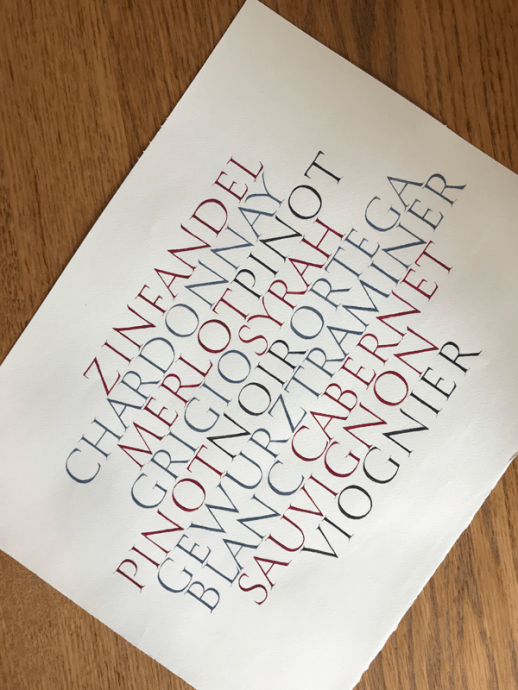 ZINFANDEL
CHARDONNAY
MERLOT PINOT
GRIGIO SYRAH
PINOT NOIR ORTEGA
GEWURZTRAMINER
BLANC CABERNET
SAUVIGNON
VIOGNIER